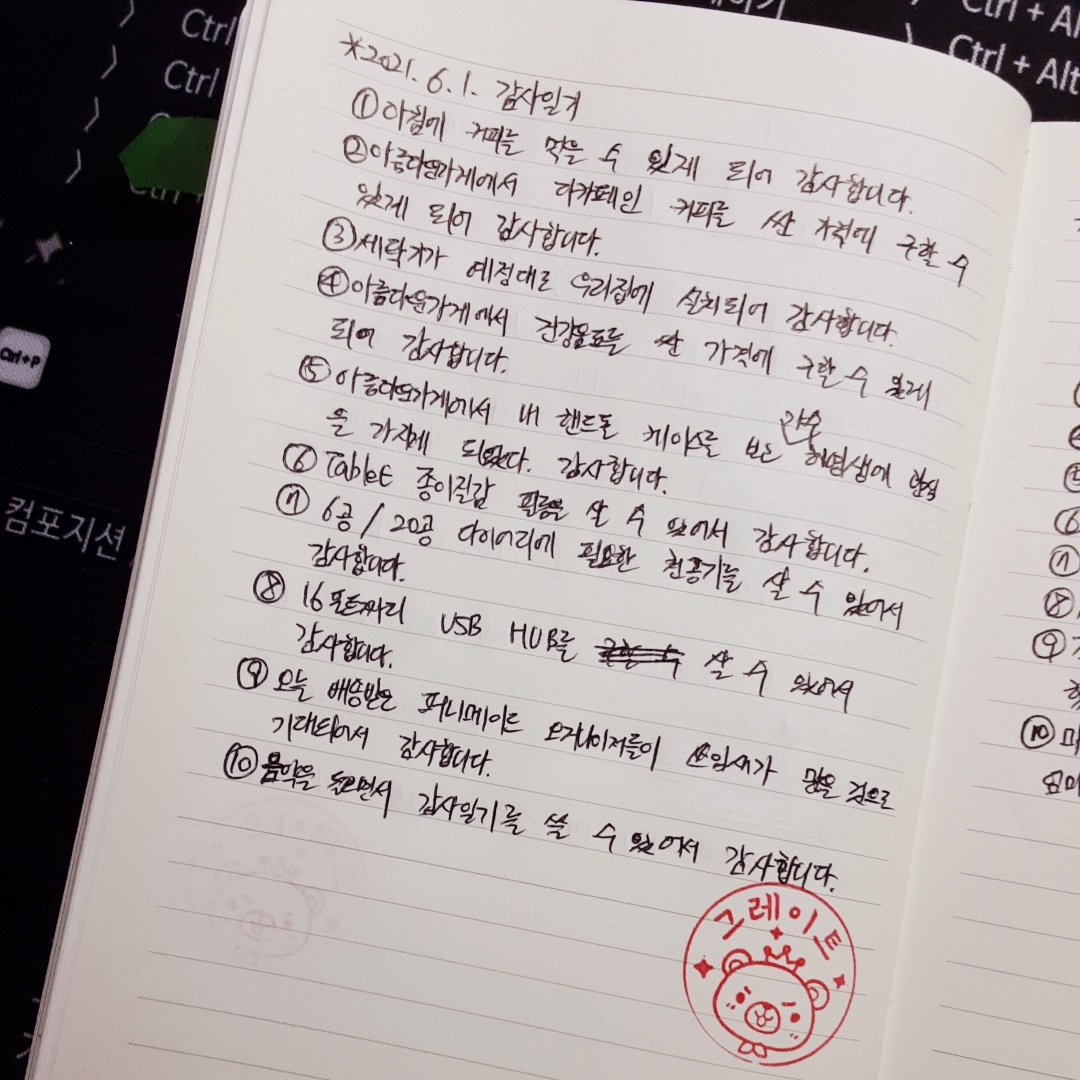 Ctrl
Ctrl
Ctrl +
Ctrl + Alt
Ctrl + Alt
Ctrl+P
컴포지션
*2021.6.1. 감사일기
① 아침에 커피를 막을 수 있게 되어 감사합니다.
② 아름다운가게에서 디카페인 커피를 싼 가격에 구할 수
있게 되어 감사합니다.
③ 세탁기가 예정대로 우리집에 설치되어 감사합니다.
④ 아름다운가게에서 건강음료를 싼 가격에 구할 수 있게
되어 감사합니다.
⑤ 아름다운가게에서 내 핸드폰 케이스를 보는 가수
을 가지게 되었다. 감사합니다.
⑥ Tablet 종이질감 필름을 살 수 있어서 감사합니다.
⑦ 6공/20공 다이어리에 필요한 천공기를 살 수 있어서
감사합니다.
⑧ 16포트짜리 USB HUB를 구할 수 살 수 있어서
감사합니다.
⑨ 오늘 배송받은 퍼니메이드 오거나이저들이 쓰임새가 많을 것으로
기대되어서 감사합니다.
⑩ 음악을 들으면서 감사일기를 쓸 수 있어서 감사합니다.
그레이트
⑥
⑦
⑧
⑨
⑩